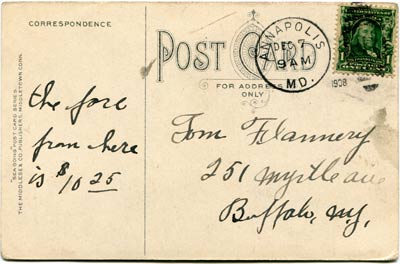 CORRESPONDENCE
POST CARD
FOR ADDRESS
ONLY
ANNAPOLIS
DEC 7
9 AM
MD.
1908
"SEA DOING" POST CARD SERIES.
THE MIDDLESEX CO. PUBLISHERS, MIDDLETOWN, CONN.
the fare
from here
is $10 25
Tom Flannery
251 Myrtle ave
Buffalo, N.Y,